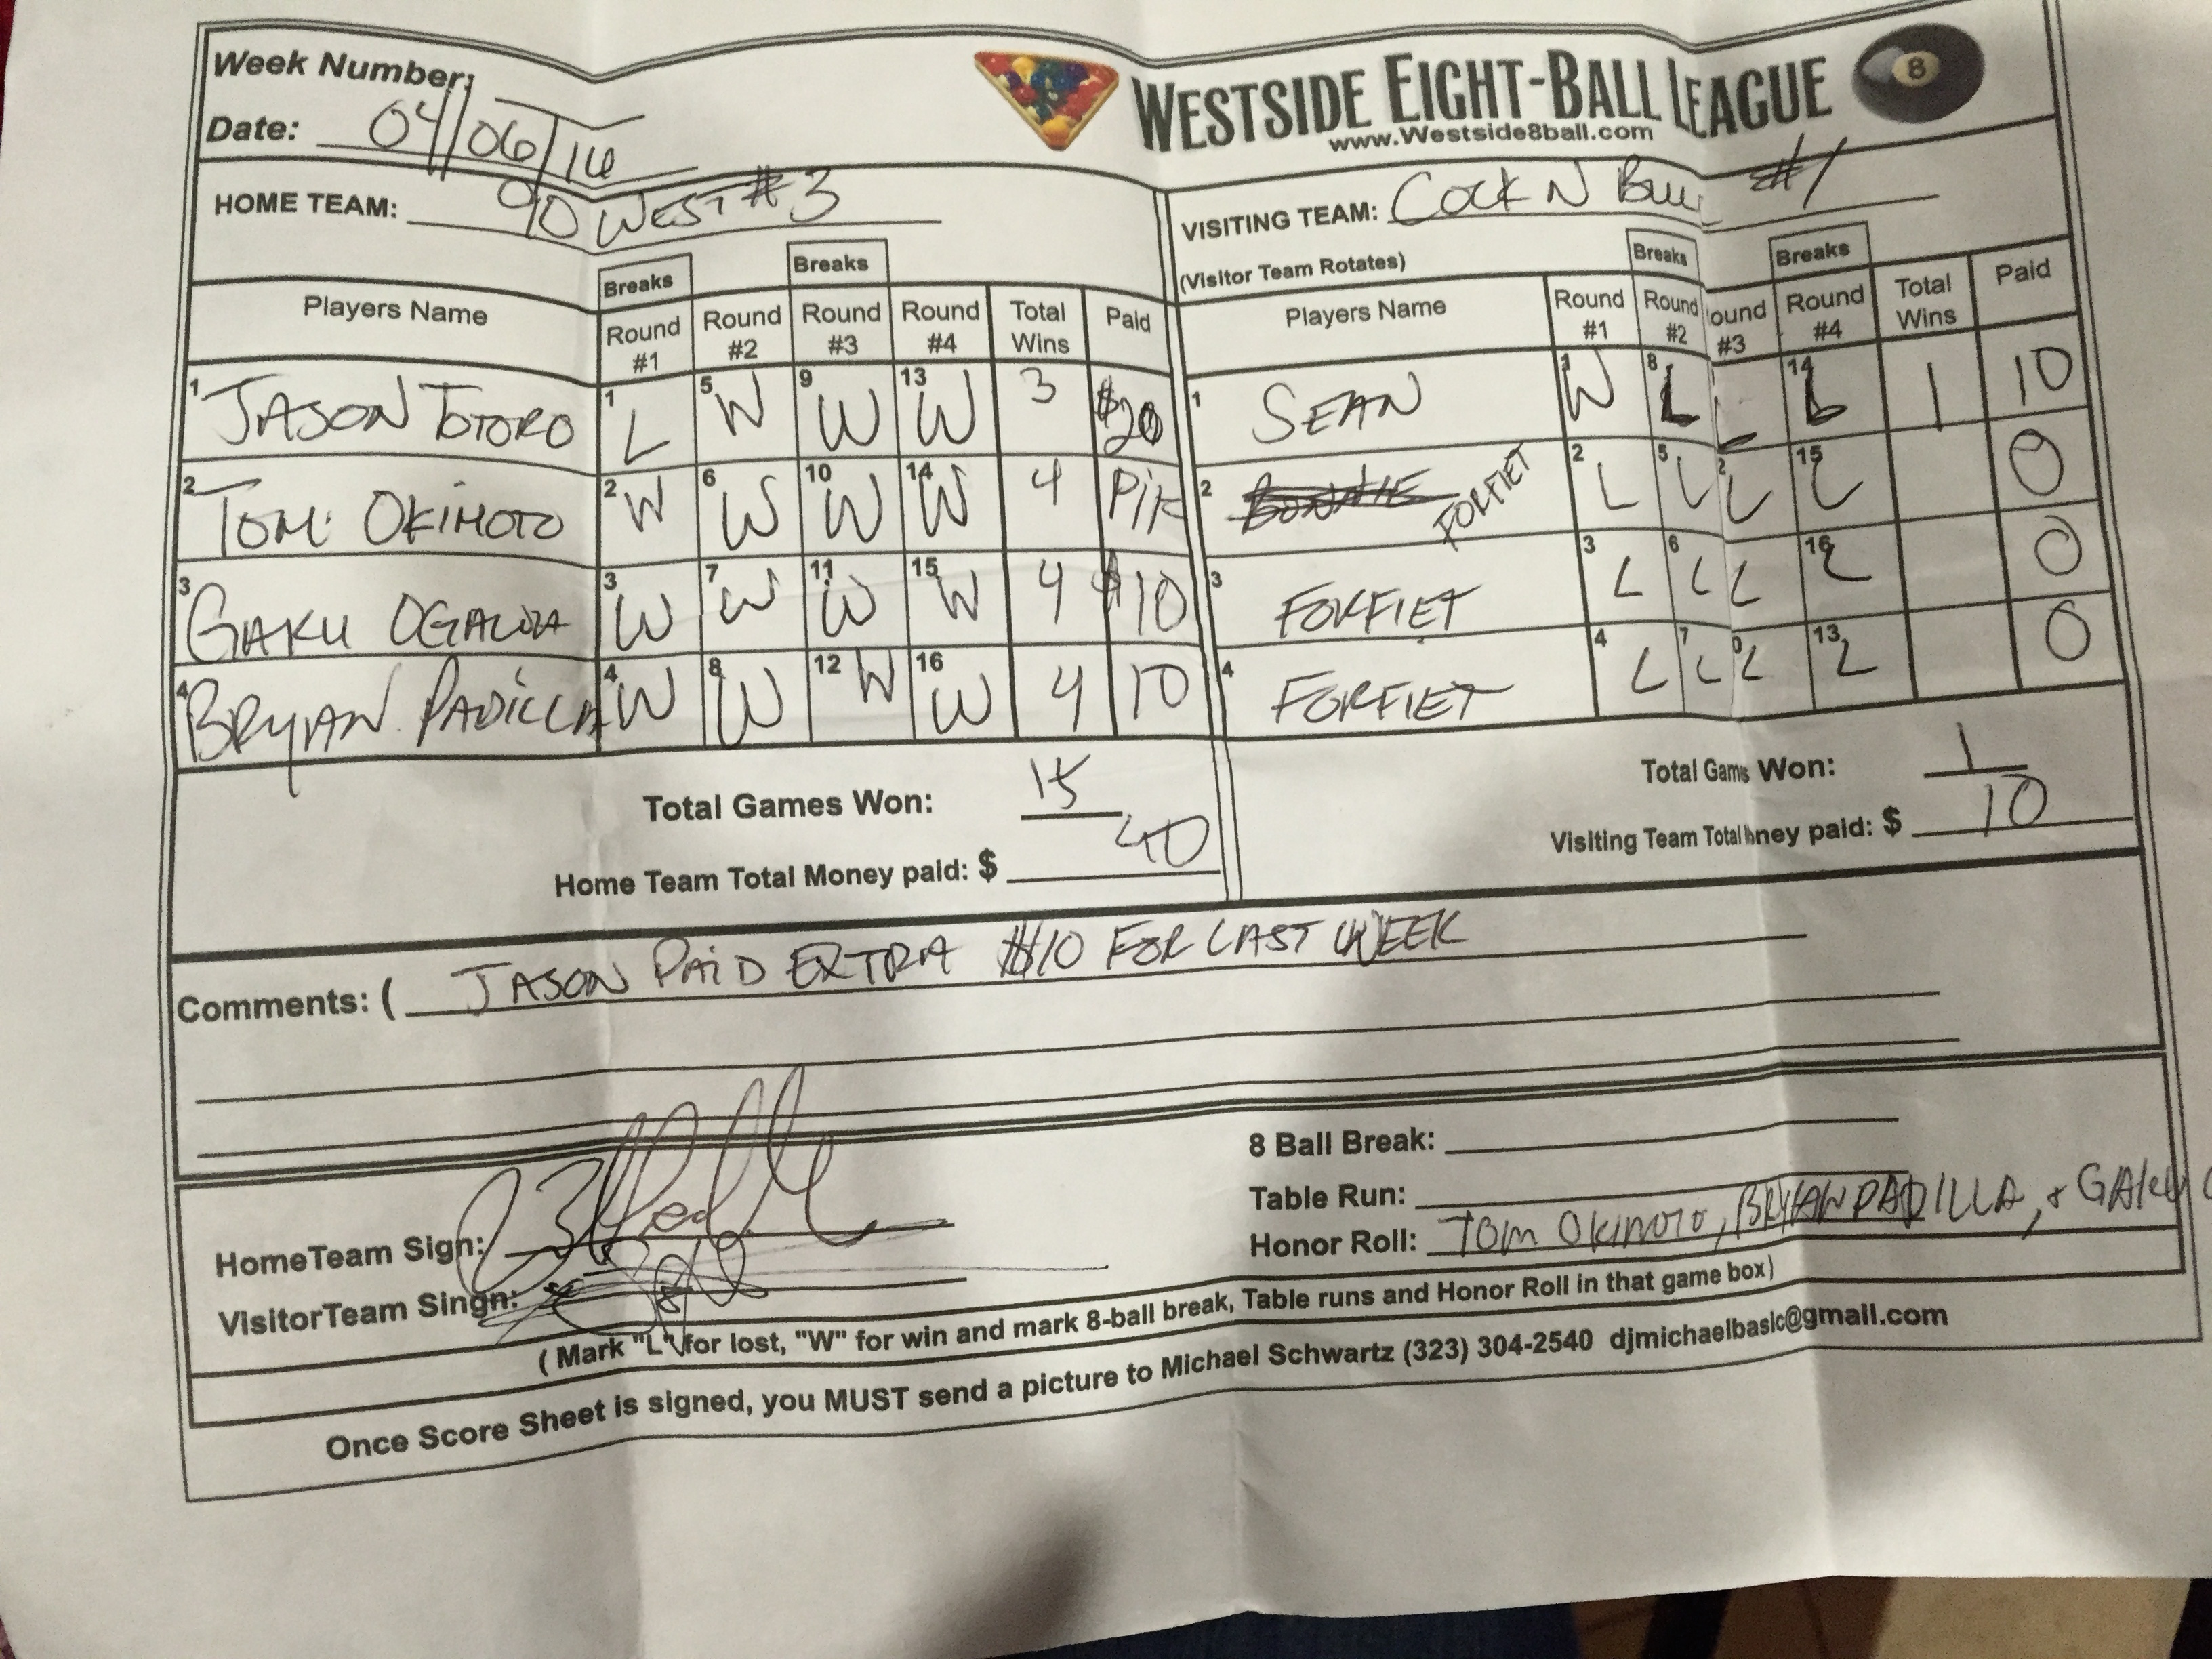 Week Number:
Date: 04/06/16
WESTSIDE EIGHT-BALL LEAGUE 8
www.Westside8ball.com
HOME TEAM: 90 WEST #3
VISITING TEAM: COCK N BULL #1
(Visitor Team Rotates)
Breaks Breaks Breaks Breaks
Players Name Round #1 Round #2 Round #3 Round #4 Total Wins Paid
Players Name Round #1 Round #2 ound #3 Round #4 Total Wins Paid
1 JASON TOTORO 1 L 5 W 9 W 13 W 3 $20
1 SEAN 1 W 8 L L 14 L 1 10
2 TOM OKIMOTO 2 W 6 W 10 W 14 W 4
2 BONNIE FORFIET 2 L 5 L 2 L 15 L 0
3 GAKU OGAWA 3 W 7 W 11 W 15 W 4 $10
3 FORFIET 3 L 6 L L 16 L 0
4 BRYAN PADILLA 4 W 8 W 12 W 16 W 4 10
4 FORFIET 4 L 7 L 0 L 13 L 0
Total Games Won: 15
Home Team Total Money paid: $ 40
Total Gams Won: 1
Visiting Team Total ney paid: $ 10
Comments: ( JASON PAID EXTRA $10 FOR LAST WEEK
8 Ball Break:
Table Run:
Honor Roll: TOM OKIMOTO, BRYAN PADILLA, + GAKU
HomeTeam Sign:
VisitorTeam Singn:
( Mark "L" for lost, "W" for win and mark 8-ball break, Table runs and Honor Roll in that game box)
Once Score Sheet is signed, you MUST send a picture to Michael Schwartz (323) 304-2540 djmichaelbasic@gmail.com